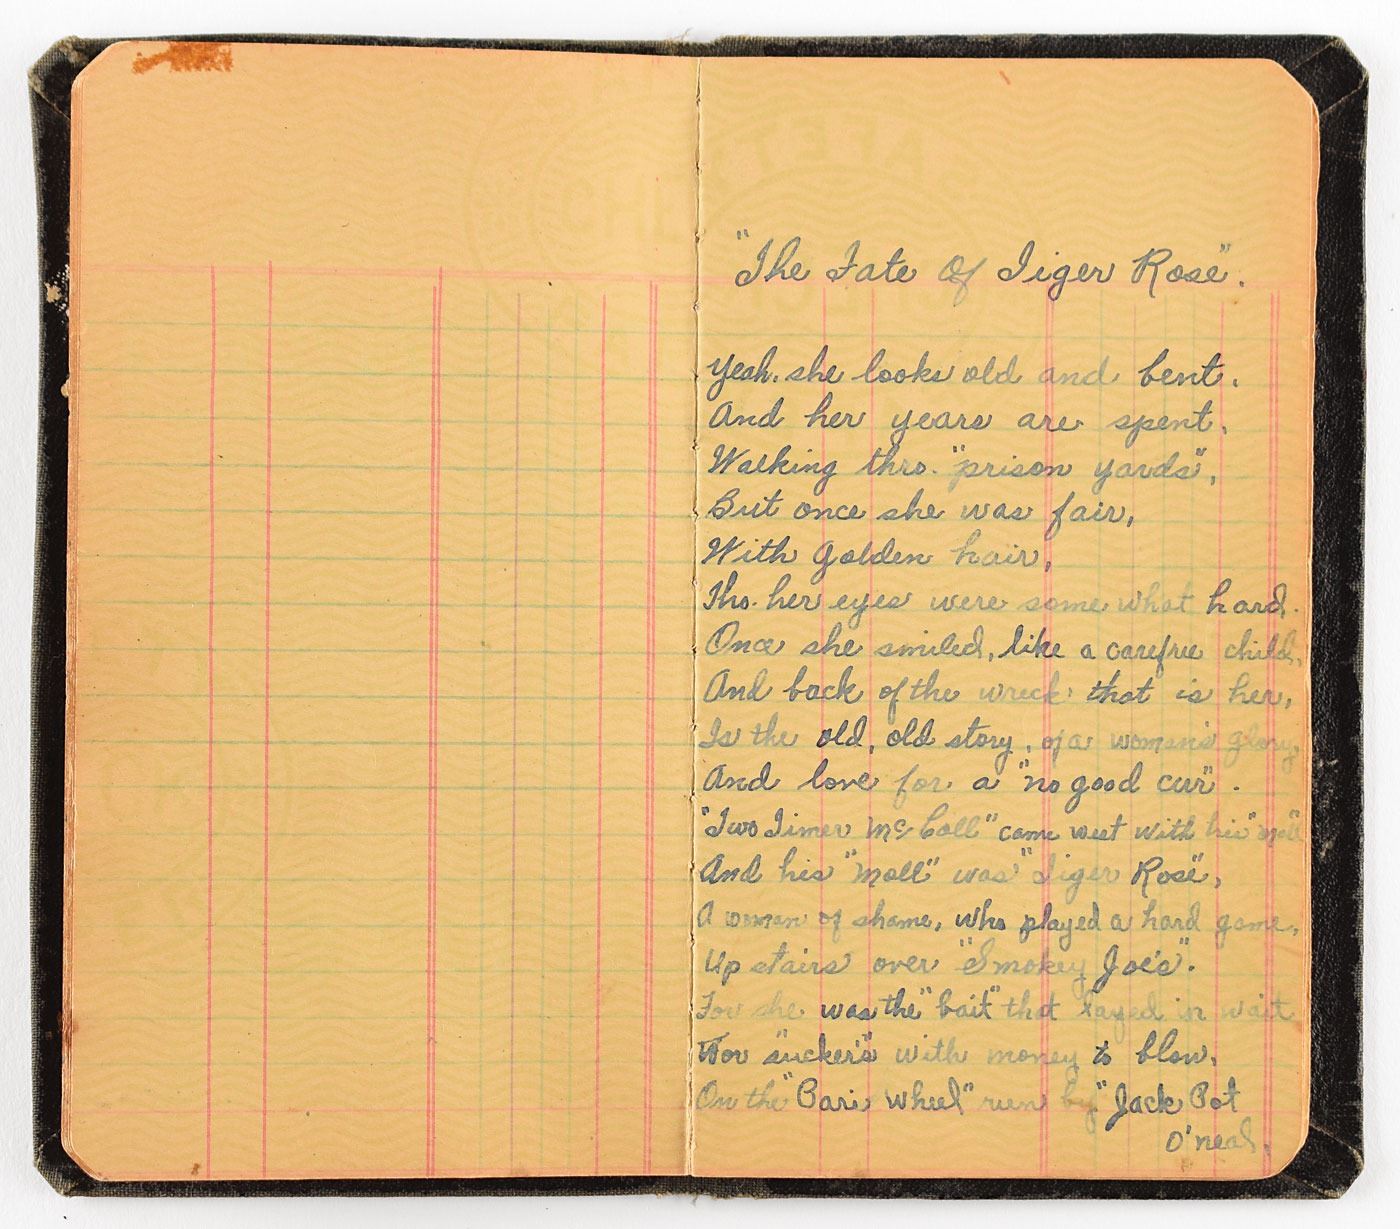 "The Fate Of Tiger Rose".
Yeah. she looks old and bent.
And her years are spent.
Walking thro. "prison yards",
But once she was fair,
With golden hair,
Tho. her eyes were some what hard.
Once she smiled, like a carefree child,
And back of the wreck that is her,
Is the old, old story, of a woman's glory,
And love for a "no good cur".
"Two Timer McColl" came west with his "moll"
And his "moll" was "Tiger Rose",
A woman of shame, who played a hard game,
Up stairs over "Smokey Joe's".
For she was the "bait" that layed in wait
For "suckers" with money to blow,
On the "Pari wheel" run by "Jack Pot
O'neal,